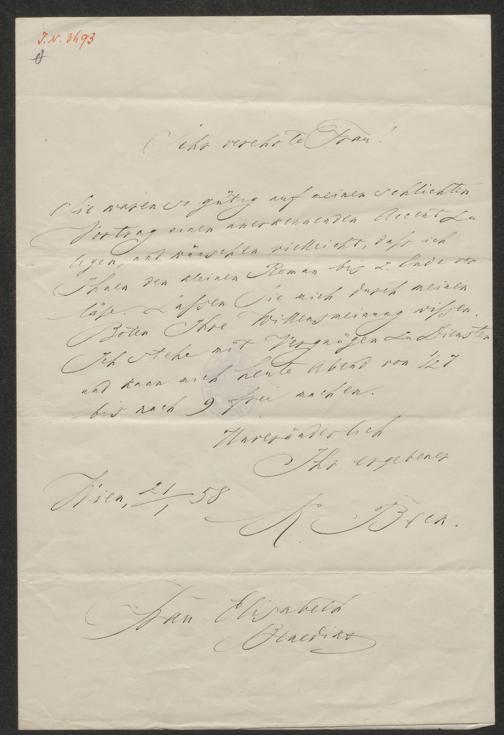 J. N. 3693
Sehr verehrte Frau!
Sie waren so gütig auf meinen schlichten
Vortrag einen anerkennenden Accent zu
legen, und wünschen vielleicht, daß ich
Ihnen den kleinen Roman bis z. Ende vor
läse. Lassen Sie mich durch meinen
Boten Ihre Willensmeinung wissen.
Ich stehe mit Vergnügen zu Diensten
und kann mich heute Abend von ½7
bis nach 9 frei machen.
Unveränderlich
Ihr ergebener
Wien, 21/1 58
K. Beck.
Frau Elisabeth